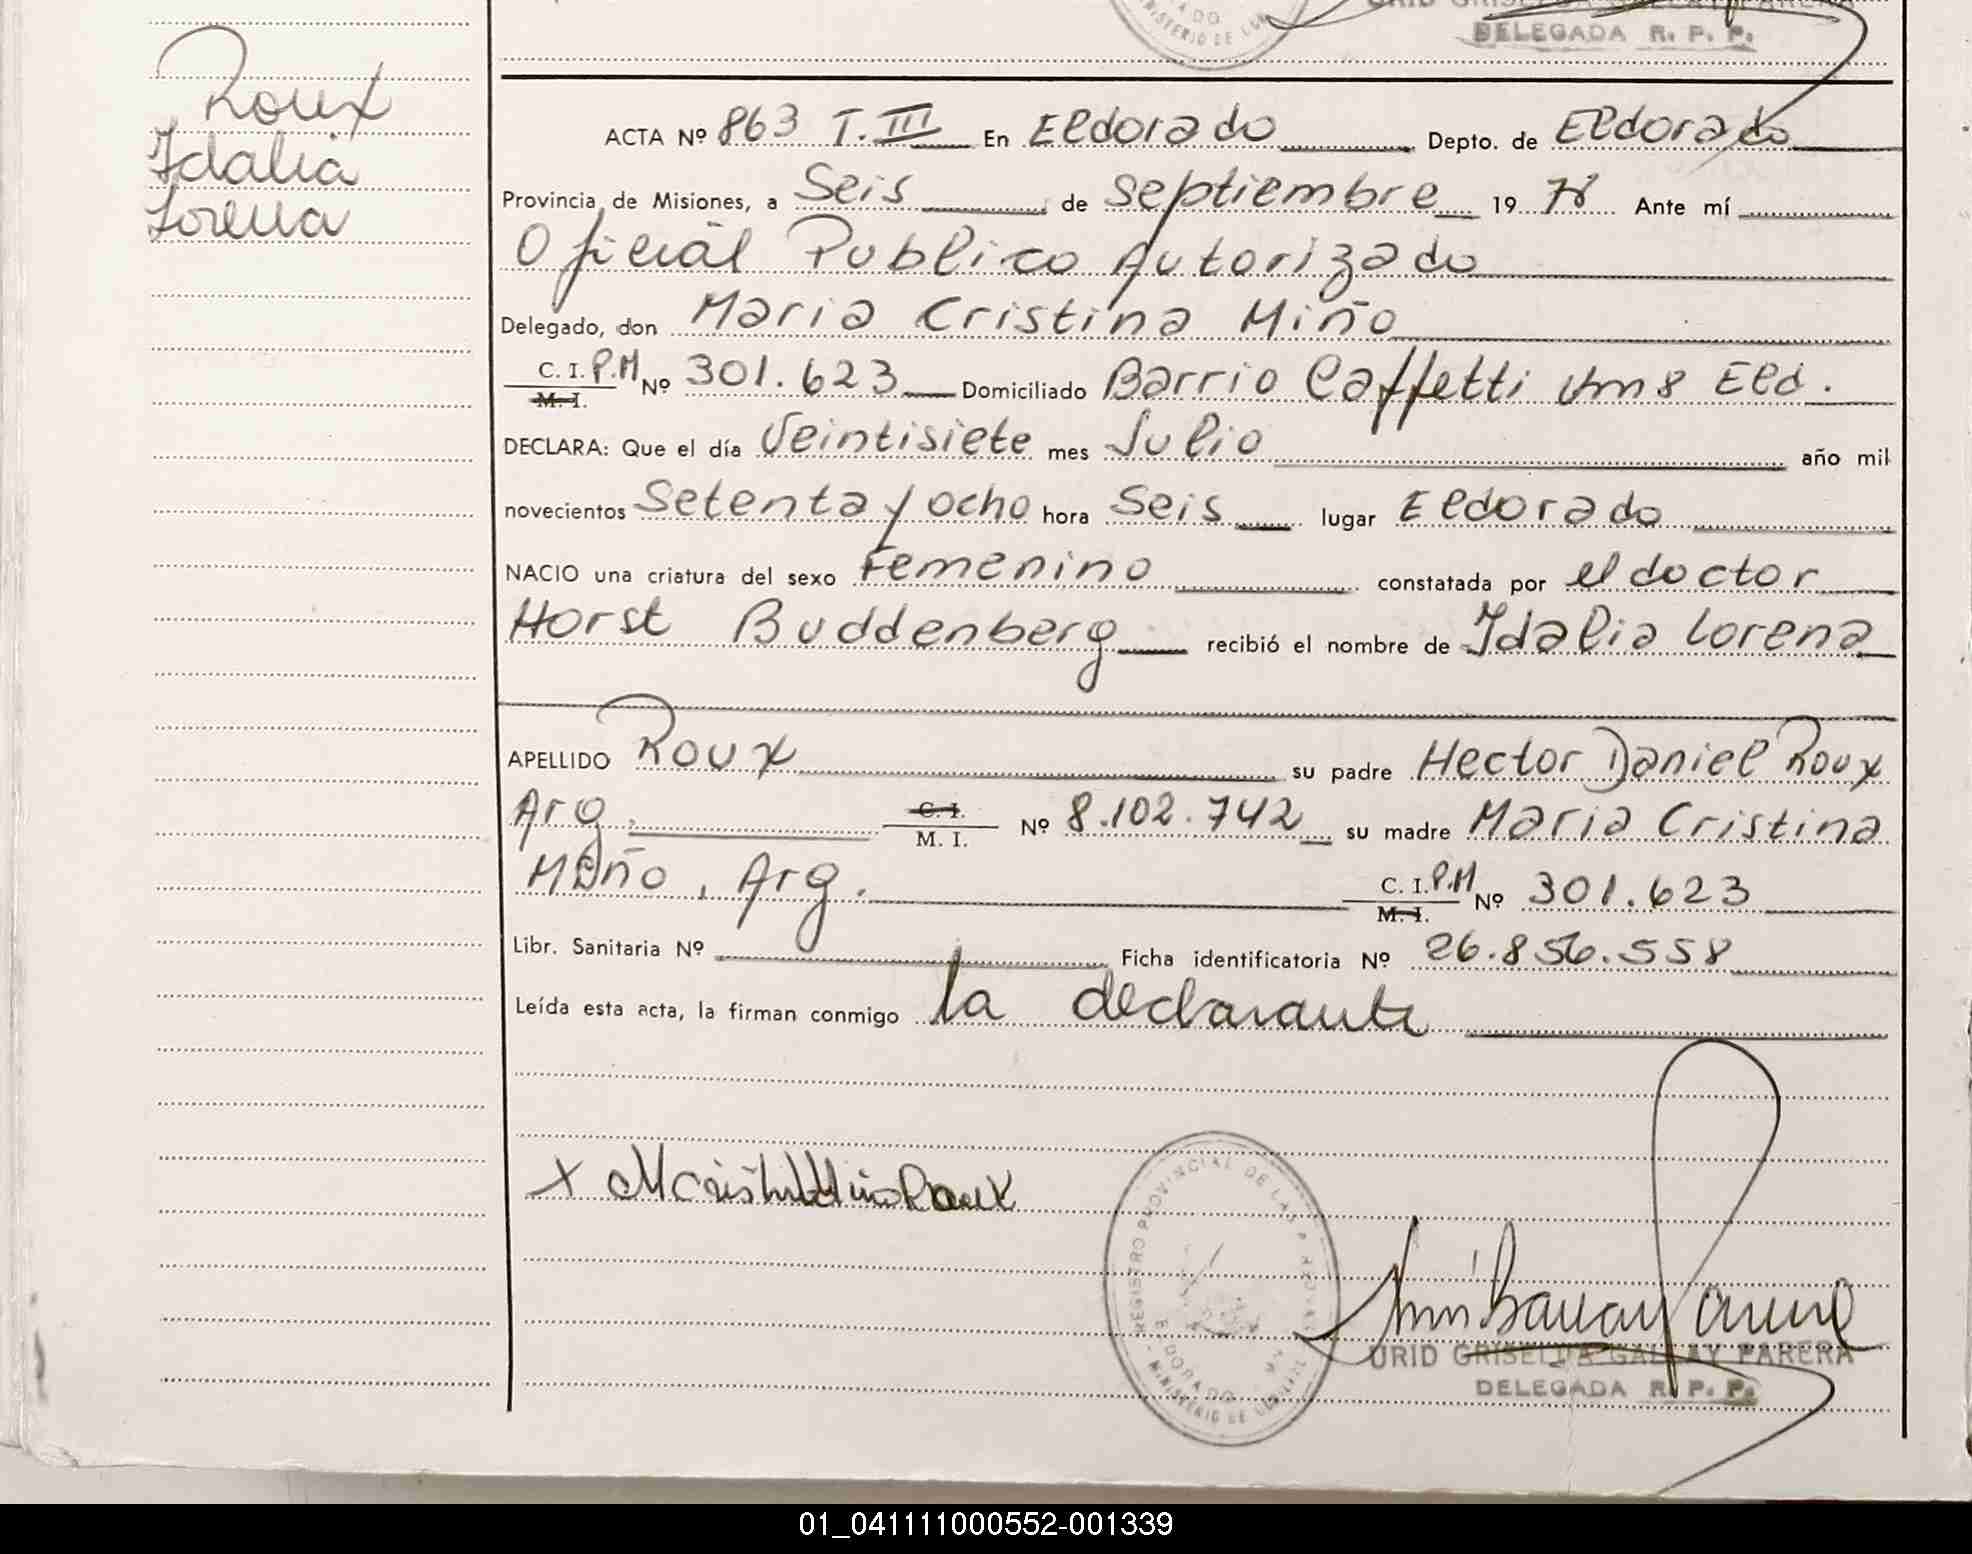 DELEGADA R. P. P.
Roux
Idalia
Lorena
ACTA Nº 863 T. III En Eldorado Depto. de Eldorado
Provincia de Misiones, a Seis de Septiembre 19 78 Ante mí
Oficial Publico Autorizado
Delegado, don Maria Cristina Miño
C. I. P.M Nº 301.623 Domiciliado Barrio Caffetti Km 8 Eld.
M. I.
DECLARA: Que el día Veintisiete mes Julio año mil
novecientos Setenta y ocho hora Seis lugar Eldorado
NACIO una criatura del sexo Femenino constatada por el doctor
Horst Buddenberg recibió el nombre de Idalia Lorena
APELLIDO Roux su padre Hector Daniel Roux
Arg. C. I. M. I. Nº 8.102.742 su madre Maria Cristina
Miño, Arg. C. I. P.M Nº 301.623
M. I.
Libr. Sanitaria Nº Ficha identificatoria Nº 26.856.558
Leída esta acta, la firman conmigo la declarante
REGISTRO PROVINCIAL DE LAS PERSONAS
ELDORADO
URID GRISELDA GALLAY PARERA
DELEGADA R. P. P.
01_041111000552-001339